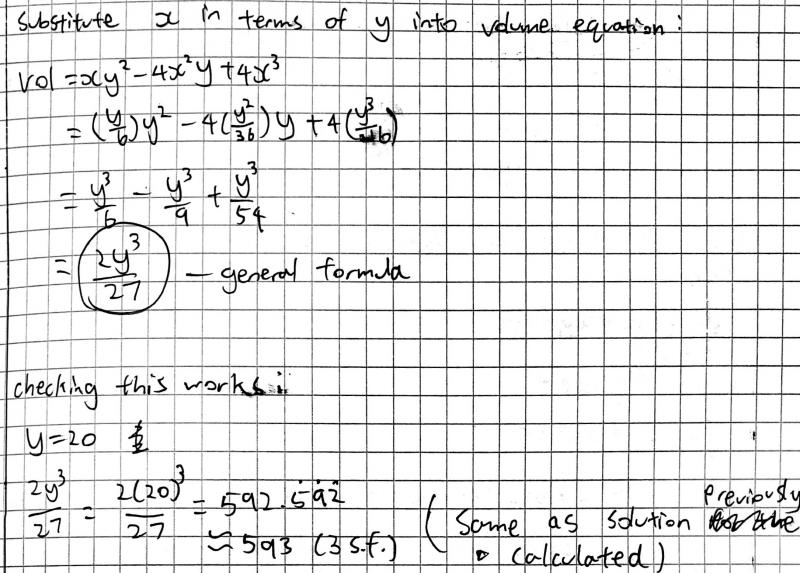 Substitute x in terms of y into volume equation:
Vol = xy² - 4x²y + 4x³
= (y/6)y² - 4(y²/36)y + 4(y³/216)
= y³/6 - y³/9 + y³/54
= 2y³/27 — general formula
checking this works:
y=20
2y³/27 = 2(20)³/27 = 592.5̇9̇2̇
≈ 593 (3 s.f.) (Same as solution previously
calculated)